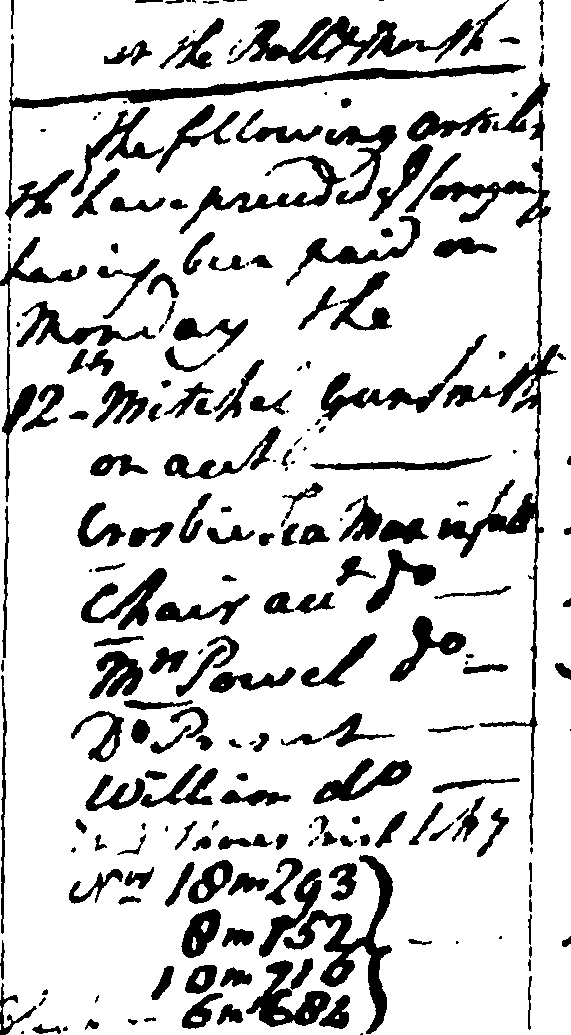 the
the following articles
th have preceded foregoing
having been paid on
Monday the
12th Mitchel Gunsmith
on acct
Crosbie Tea Man in full
Chair acct do
Mrs Powel do
Do Present
William do
Irish
Nos 18m293
8m152
10m710
6m684